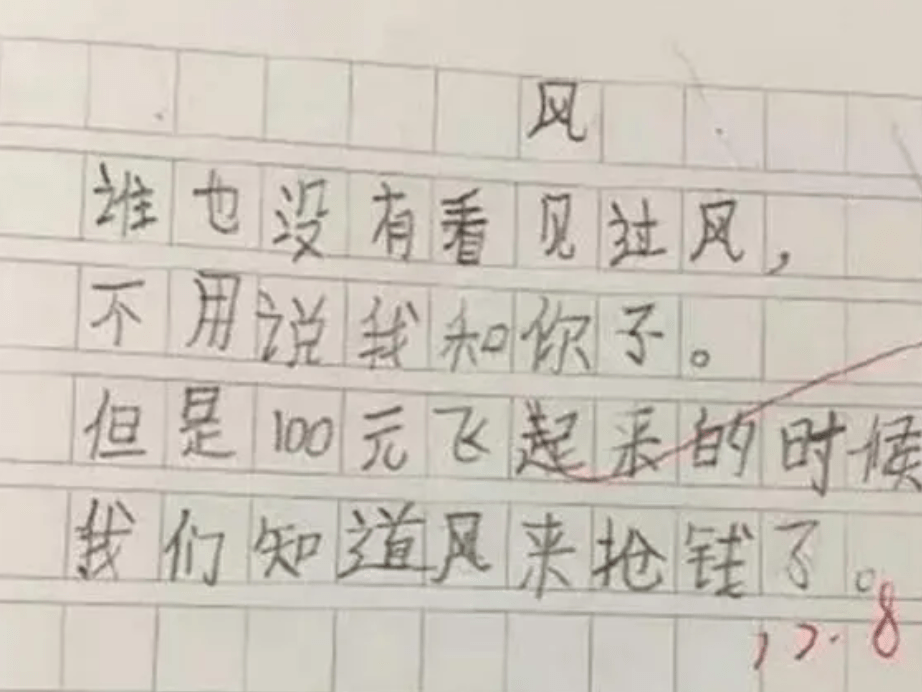 风
谁也没有看见过风，
不用说我知你子。
但是100元飞起来的时候
我们知道风来抢钱了。
12.8